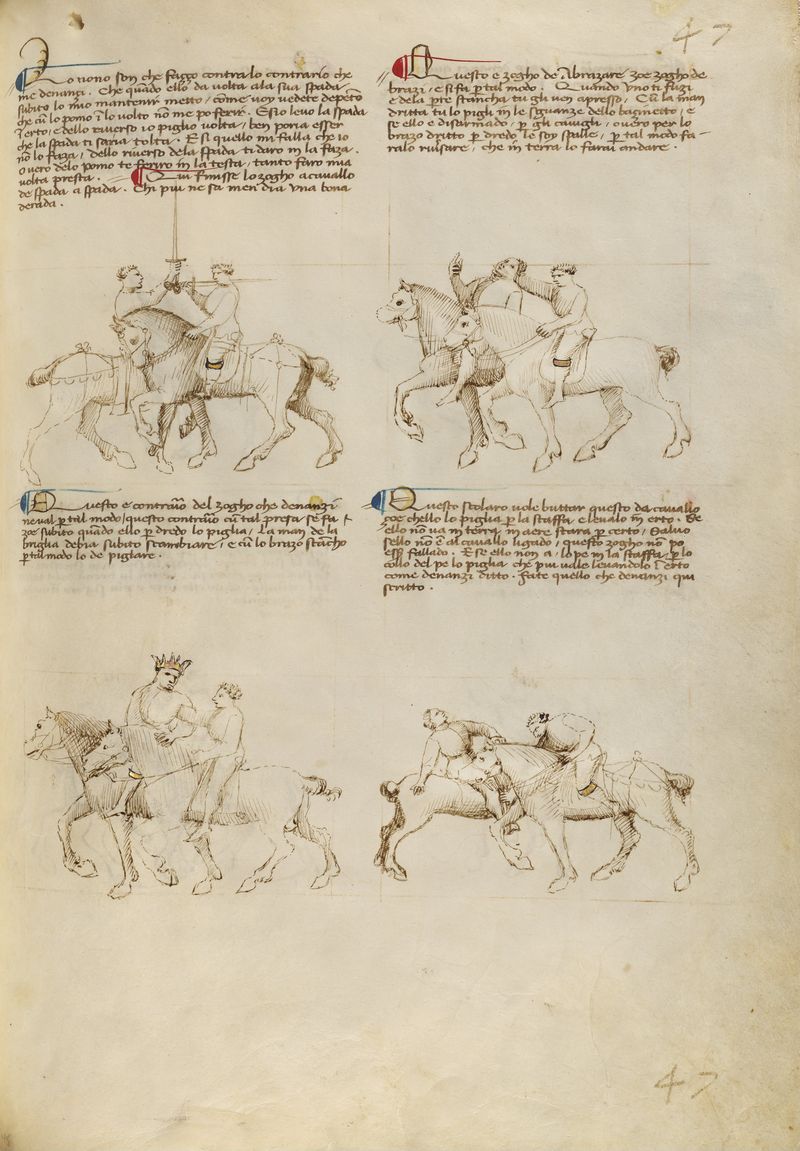 47
Io nono son che faço contra lo contrario che
me denançi. Che quãdo ello da volta ala sua spada
subito lo mio mantenir metto / come voy vedete depento
che cũ lo pomo ĩ lo volto nõ me po ferir. Esio levo la spada
ĩ erto / e dello riverso io piglio volta / ben poria esser
che la spada ti saria tolta. E si quello mi falla che io
nõ lo faza / dello riverso dela spada ti daro in la faza.
O vero delo pomo te ferire in la testa / tanto faro mia
volta presta. Qui finisse lo zogho a cavallo
de spada a spada. Chi piu ne sa men dia una bona
derada.
Questo e zogho de Abrazare zoe zogho de
brazi / e si fa p tal modo. Quando uno ti fuzi
e dela pte stancha tu gli ven apresso. Cũ la man
dritta tu lo pigli in le sguanze dello bacineto / e
se ello e disarmado / p gli cavigli / overo per lo
brazo dritto p dredo le soy spalle / p tal modo fa-
ralo riversare / che in terra lo farai andare.
Questo e contraio del zogho che denanzi
ne va / p tal modo / questo contraio cũ tal presa se fa
zoe subito quãdo ello p dredo lo piglia / La man de la
briglia debia subito scambiare / e cũ lo brazo stãcho
p tal modo lo de pigliare.
Questo scolaro vole buttar questo da cavallo
zoe chello lo piglia p la staffa e levalo in erto. Se
ello nõ va in terra / in aere stara p certo / Salvo
sello nõ e al cavallo ligado / questo zogho nõ po
esser fallado. E se ello non a lo pe in la staffa / p lo
collo del pe lo piglia che piu valle levandolo ĩ erto
come denanzi ditto. Fate quello che denanzi qui
scritto.
47